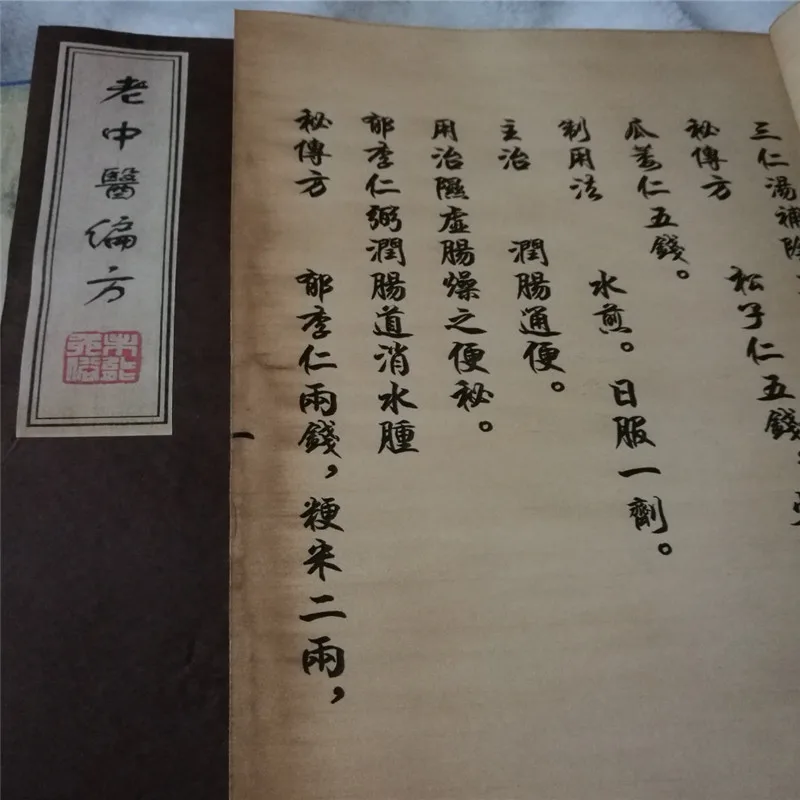 三仁湯補
秘傳方 松子仁五錢
瓜蔞仁五錢。
制用法 水煎。日服一劑。
主治 潤腸通便。
用治陰虛腸燥之便秘。
郁李仁粥潤腸道消水腫
秘傳方 郁李仁兩錢，粳米二兩，
老中醫偏方